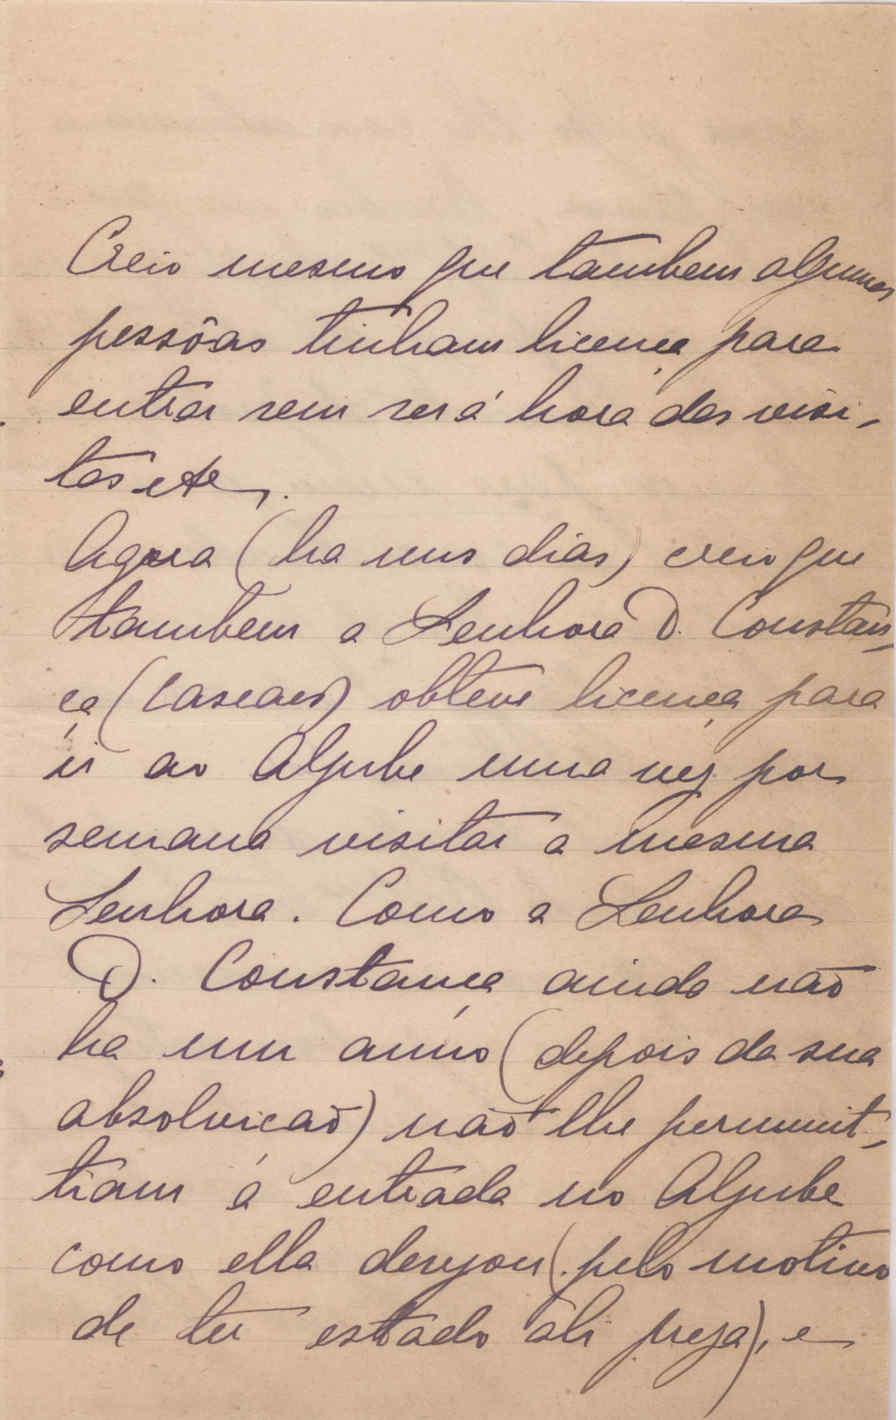 Creio mesmo que tambem algumas
pessôas tinham licença para
entrar sem ser á hora das visi-
tas etc.
Agora (ha uns dias) creio que
tambem a Senhora D. Constan-
ça (Cascaes) obteve licença para
ir ao Aljube uma vez por
semana visitar a mesma
Senhora. Como a Senhora
D. Constança ainda não
ha um anno (depois da sua
absolvicaõ) não lhe permmit-
tiam á entrada no Aljube
como ella desejou (pelo motivo
de ter estado ali preza), e